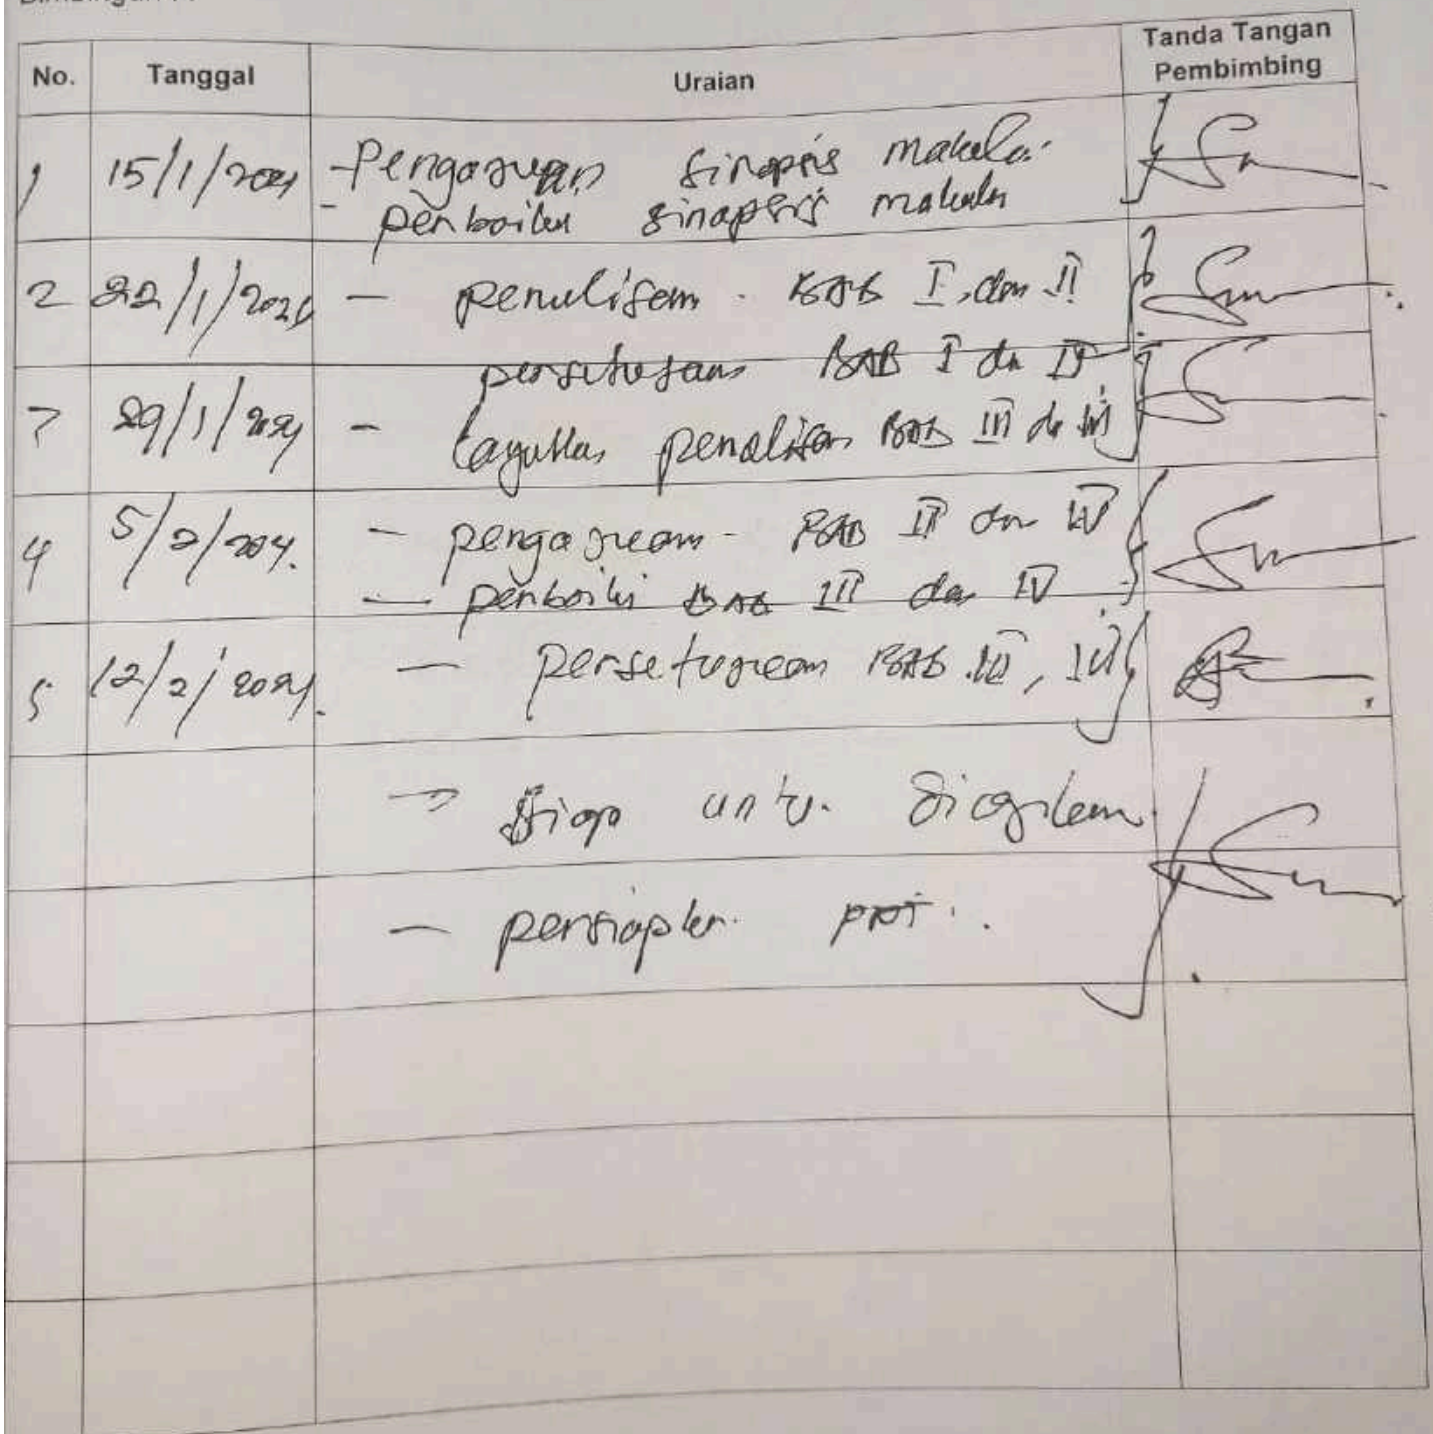 No. Tanggal Uraian Tanda Tangan Pembimbing
1 15/1/2021 - Pengajuan sinopsis makala
- perbaikn sinapsis makala
2 22/1/2021 - penulisan BAB I dan II
persetujuan BAB I da II
3 29/1/2021 - penulisan BAB III da
4 5/2/2021. - pengajuean BAB dan IV
- perbaiki BAB III dan IV
5 12/2/2021. - persetujuean BAB III, IV
- siap untu.
- persiapkn. PPT.